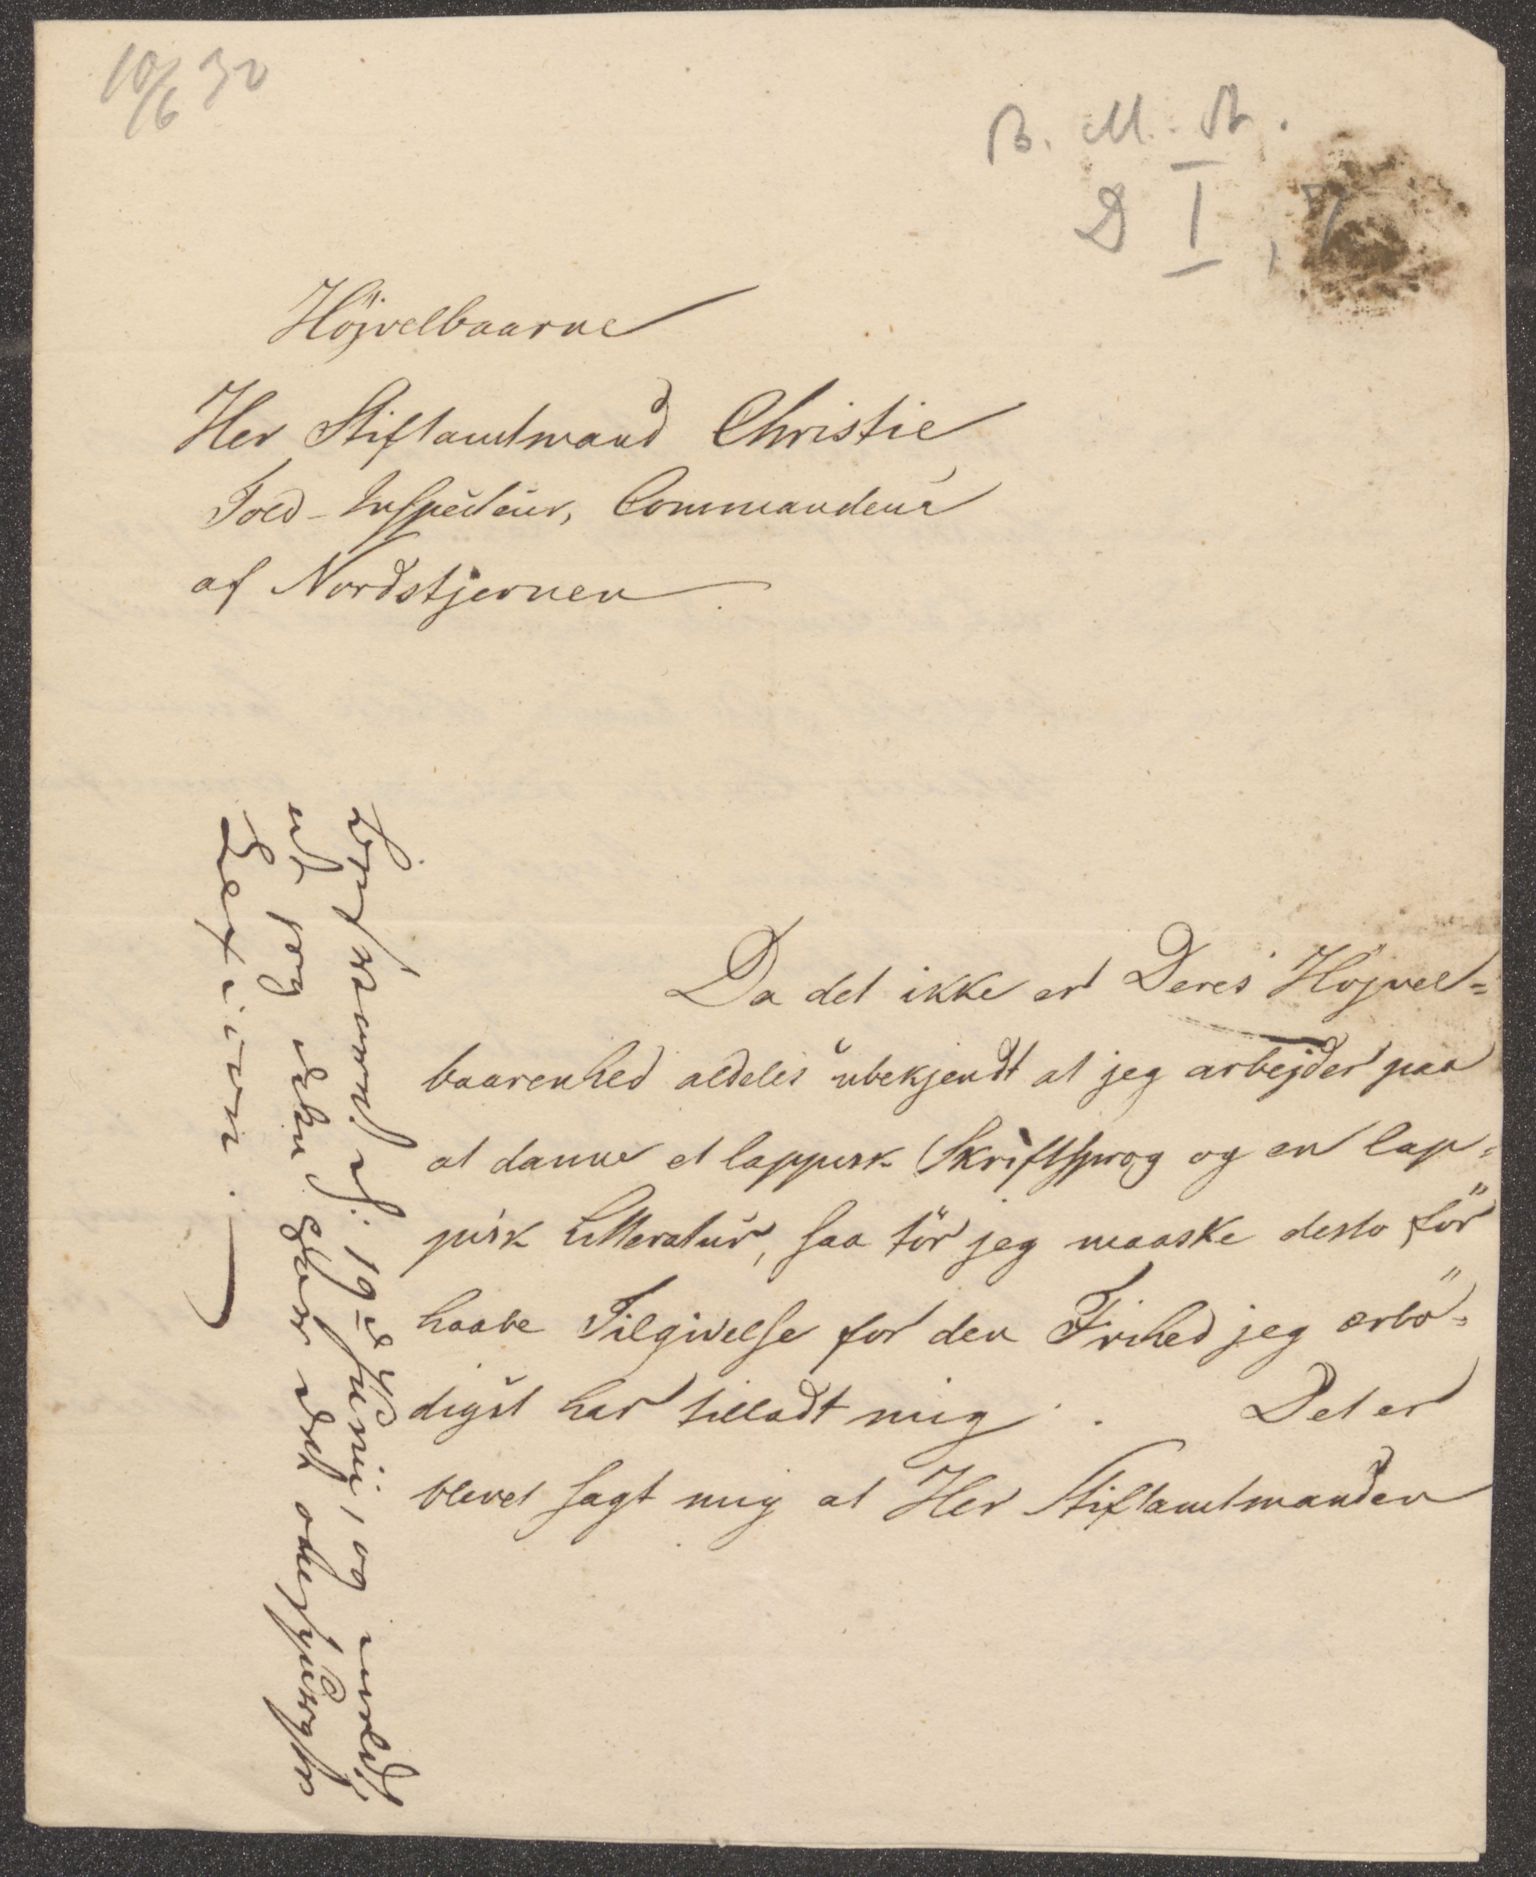 10/6 32
B. M. A.
D I, 7
Höjvelbaarne
Her Stiftamtmand Christie
Told-Inspecteur, Commandeur
af Nordstjernen.
Da det ikke er Deres Höjvel=
baarenhed aldeles ubekjendt at jeg arbejder paa
at danne et lappisk Skriftsprog og en lap=
pisk Litteratur, saa tör jeg maaske desto för
haabe Tilgivelse for den Frihed jeg ærbö=
digst har tilladt mig. Det er
blevet sagt mig at Her Stiftamtmanden
Besvaret d: 19de Juni, og meldt,
at jeg ikke har det omspurgte
Lexicon.